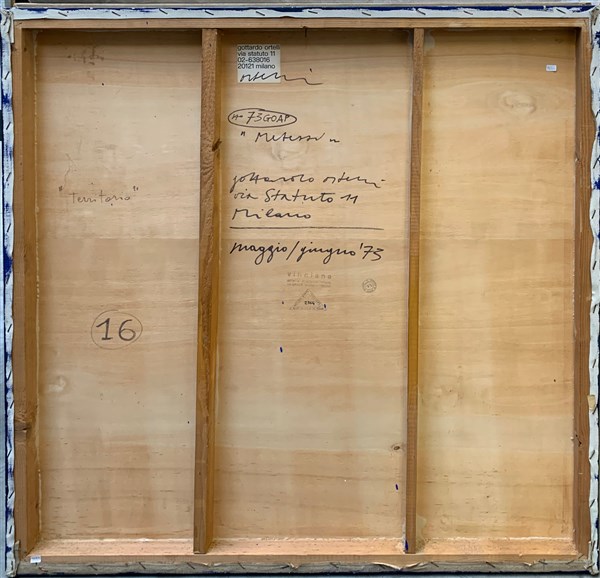 gottardo ortelli
via statuto 11
02-638016
20121 milano
ortelli
73GOAP
"Metessi"
gottardo ortelli
via Statuto 11
Milano
maggio/giugno '73
"Territorio"
16